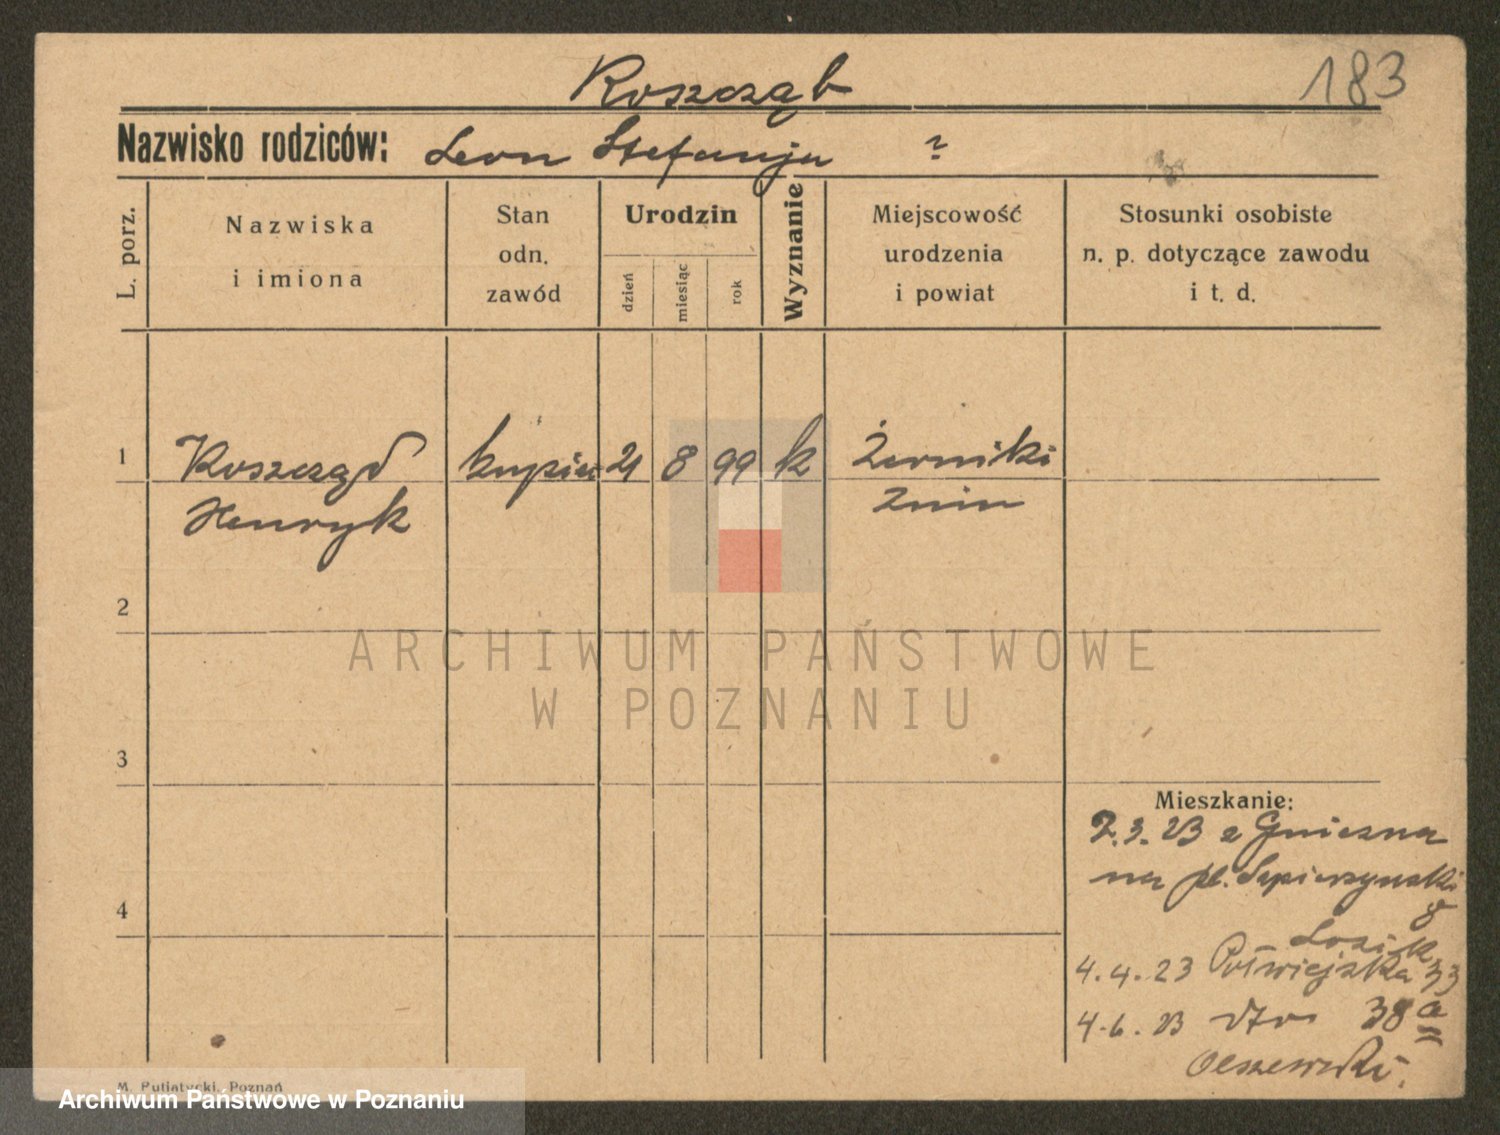 183
Roszcząb
Nazwisko rodziców: Leon Stefanja ?
L. porz.
Nazwiska
i imiona
Stan
odn.
zawód
Urodzin
dzień
miesiąc
rok
Wyznanie
Miejscowość
urodzenia
i powiat
Stosunki osobiste
n. p. dotyczące zawodu
i t. d.
1 kupiec 21 8 99 k Żerniki
Henryk Żnin
2
ARCHIWUM PAŃSTWOWE
W POZNANIU
3
Mieszkanie:
7.3.23 z Gniezna
na pl. Sapierzynski
8
4
4.4.23 Półwiejska 33
4.6.23 dto 38a
Olszewski.
M. Putiatycki, Poznań
Archiwum Państwowe w Poznaniu